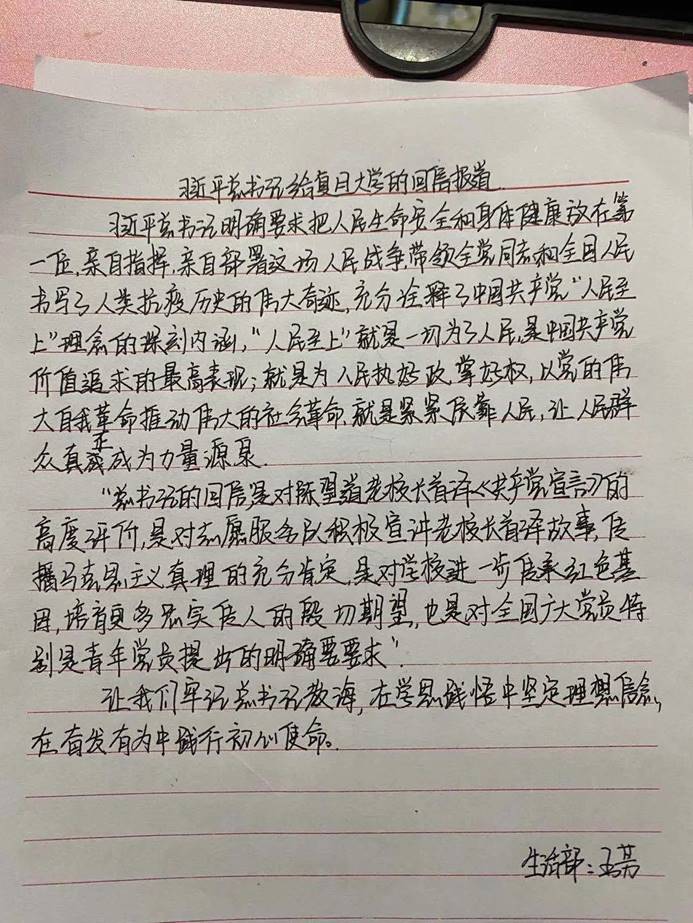 习近平总书记给复旦大学的回信报道
习近平总书记明确要求把人民生命安全和身体健康放在第
一位,亲自指挥,亲自部署这场人民战争,带领全党同志和全国人民
书写了人类抗疫历史的伟大奇迹,充分诠释了中国共产党“人民至
上”理念的深刻内涵,“人民至上”就是一切为了人民,是中国共产党
价值追求的最高表现;就是为人民执好政,掌好权,以党的伟
大自我革命推动伟大的社会革命,就是紧紧依靠人民,让人民群
众真正成为力量源泉.
“总书记的回信,是对陈望道老校长首译《共产党宣言》的
高度评价,是对志愿服务队积极宣讲老校长首译故事,传
播马克思主义真理的充分肯定,是对学校进一步传承红色基
因,培育更多忠实传人的殷切期望,也是对全国广大党员特
别是青年党员提出的明确要要求”.
让我们牢记总书记教诲,在学思践悟中坚定理想信念,
在奋发有为中践行初心使命。
生活部:王芳